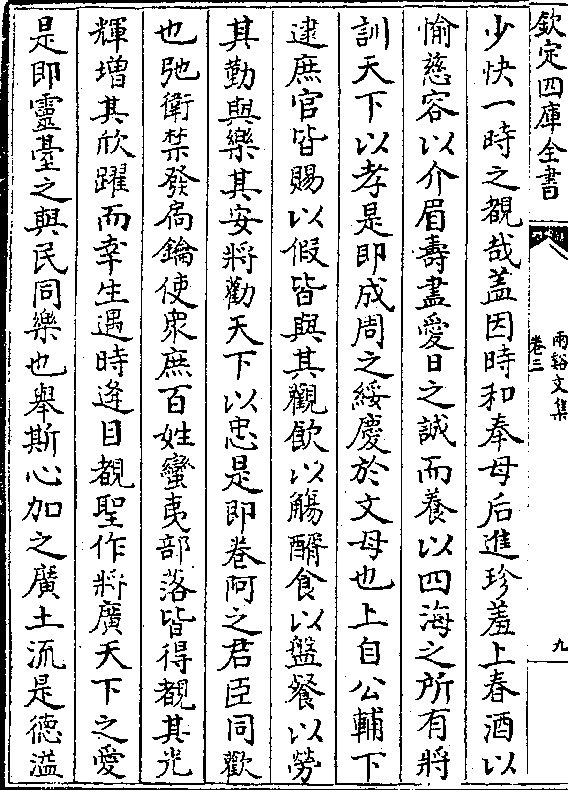 欽定四庫全書
兩谿文集
卷三
九
少快一時之覩哉蓋因時和奉母后進珍羞上春酒以
愉慈容以介眉壽盡愛日之誠而養以四海之所有將
訓天下以孝是即成周之綏慶於文母也上自公輔下
逮庶官皆賜以假皆與其觀飲以觴酳食以盤餐以勞
其勤與樂其安將勸天下以忠是即卷阿之君臣同歡
也弛衛禁發扃鑰使衆庶百姓蠻夷部落皆得覩其光
輝增其欣躍而幸生遇時逢目覩聖作將廣天下之愛
是即靈臺之與民同樂也舉斯心加之廣土流是德溢